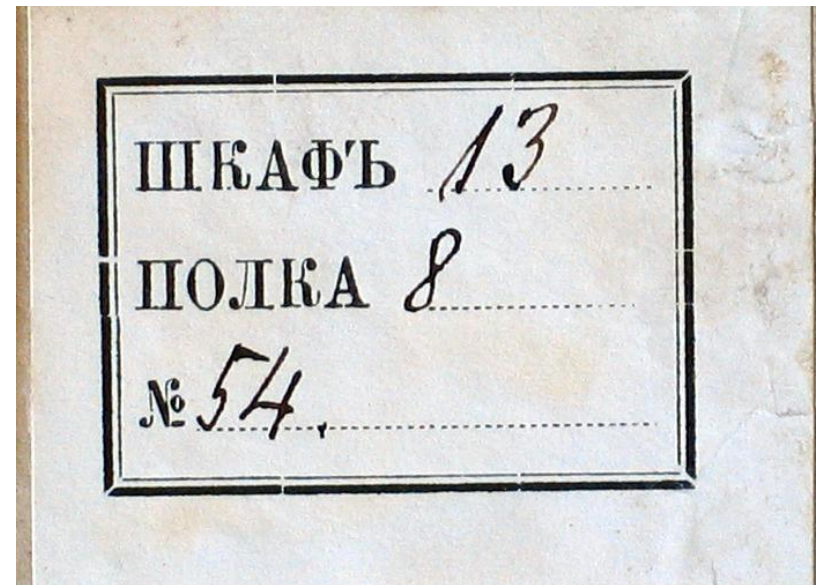 ШКАФЪ 13
ПОЛКА 8
№ 54.